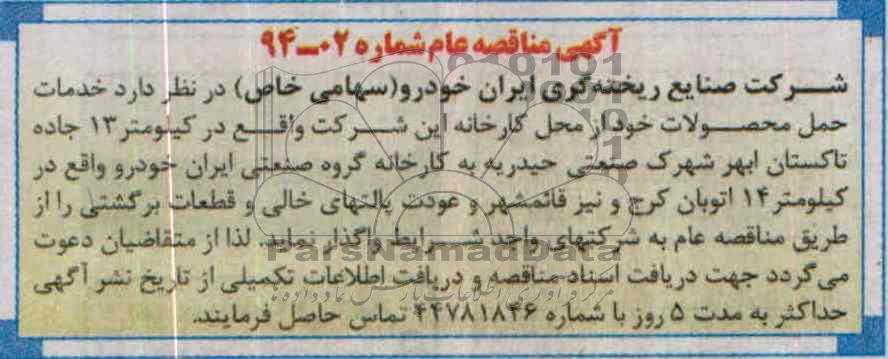 آگهی مناقصه عام شماره ۰۲-۹۴
شرکت صنایع ریخته‌گری ایران خودرو(سهامی خاص) در نظر دارد خدمات
حمل محصولات خود از محل کارخانه این شرکت واقع در کیلومتر ۱۳ جاده
تاکستان ابهر شهرک صنعتی حیدریه به کارخانه گروه صنعتی ایران خودرو واقع در
کیلومتر ۱۴ اتوبان کرج و نیز قائمشهر و عودت پالتهای خالی و قطعات برگشتی را از
طریق مناقصه عام به شرکتهای واجد شرایط واگذار نماید. لذا از متقاضیان دعوت
ParsNamadData
می‌گردد جهت دریافت اسناد مناقصه و دریافت اطلاعات تکمیلی از تاریخ نشر آگهی
حداکثر به مدت ۵ روز با شماره ۴۴۷۸۱۸۴۶ تماس حاصل فرمایند.